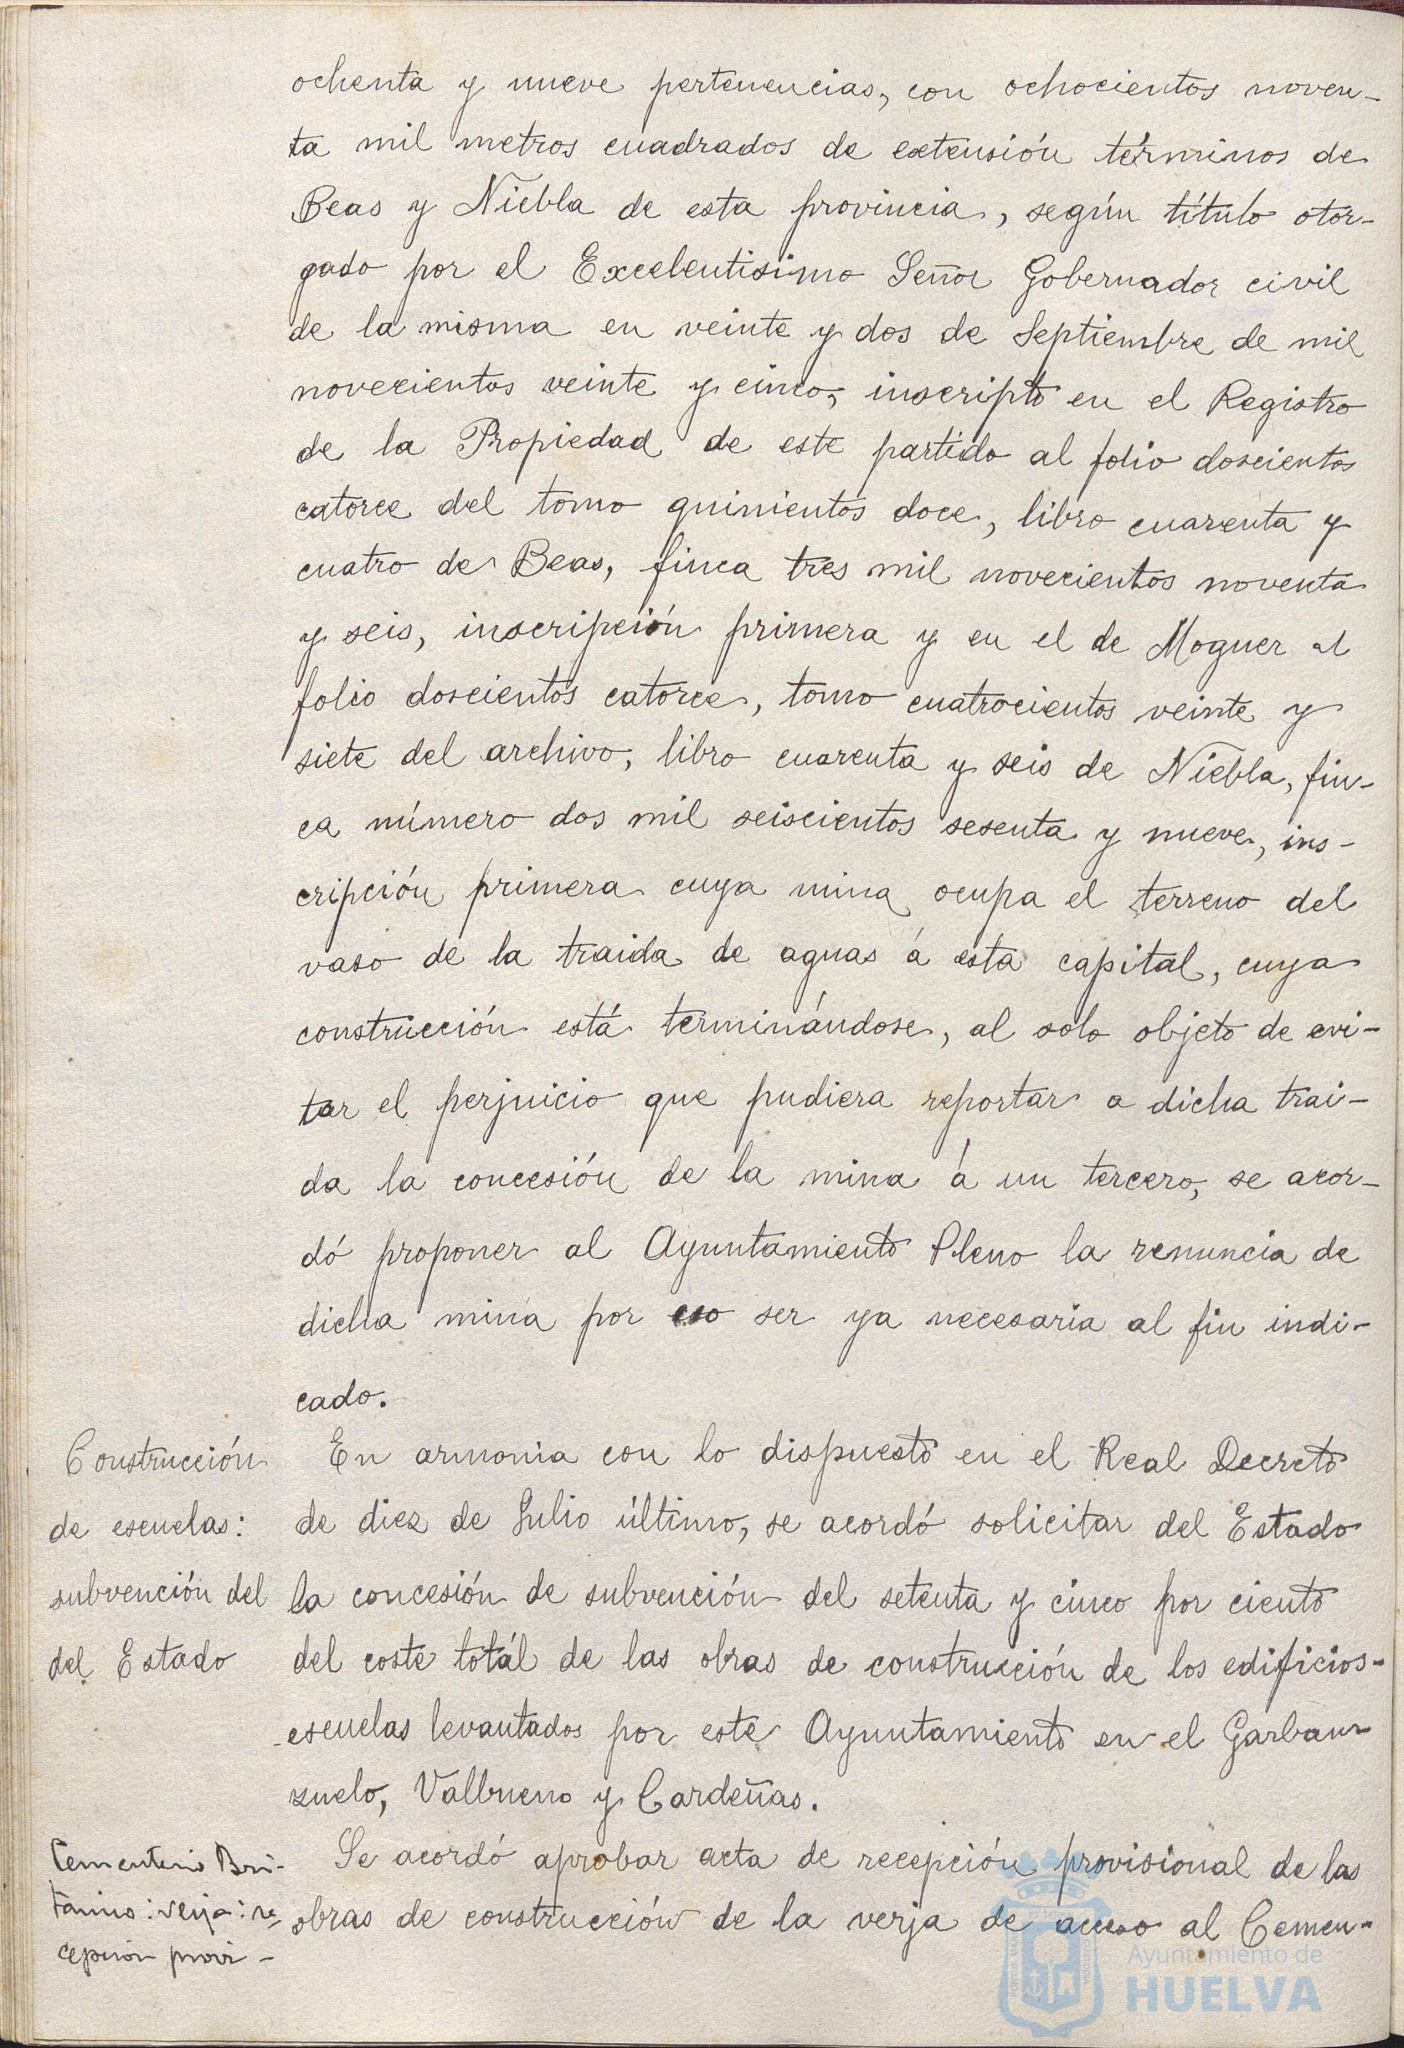 ochenta y nueve pertenencias, con ochocientos noven-
ta mil metros cuadrados de extensión términos de
Beas y Niebla de esta provincia, según título otor-
gado por el Excelentisimo Señor Gobernador civil
de la misma en veinte y dos de Septiembre de mil
novecientos veinte y cinco, inscripto en el Registro
de la Propiedad de este partido al folio doscientos
catorce del tomo quinientos doce, libro cuarenta y
cuatro de Beas, finca tres mil novecientos noventa
y seis, inscripción primera y en el de Moguer al
folio doscientos catorce, tomo cuatrocientos veinte y
siete del archivo, libro cuarenta y seis de Niebla, fin-
ca número dos mil seiscientos sesenta y nueve, ins-
cripción primera cuya mina ocupa el terreno del
vaso de la traida de aguas á esta capital, cuya
construcción está terminándose, al solo objeto de evi-
tar el perjuicio que pudiera reportar a dicha trai-
da la concesión de la mina á un tercero, se acor-
dó proponer al Ayuntamiento Pleno la renuncia de
dicha mina por eso ser ya necesaria al fin indi-
cado.
Construcción
de escuelas:
subvención del
del Estado
En armonia con lo dispuesto en el Real Decreto
de diez de Julio último, se acordó solicitar del Estado
la concesión de subvención del setenta y cinco por ciento
del coste totál de las obras de construcción de los edificios-
escuelas levantados por este Ayuntamiento en el Garban-
zuelo, Valbueno y Cardeñas.
Cementerio Bri-
tánico: verja: re-
cepción provi-
Se acordó aprobar acta de recepción provisional de las
obras de construcción de la verja de acceso al Cemen-
Ayuntamiento de
HUELVA